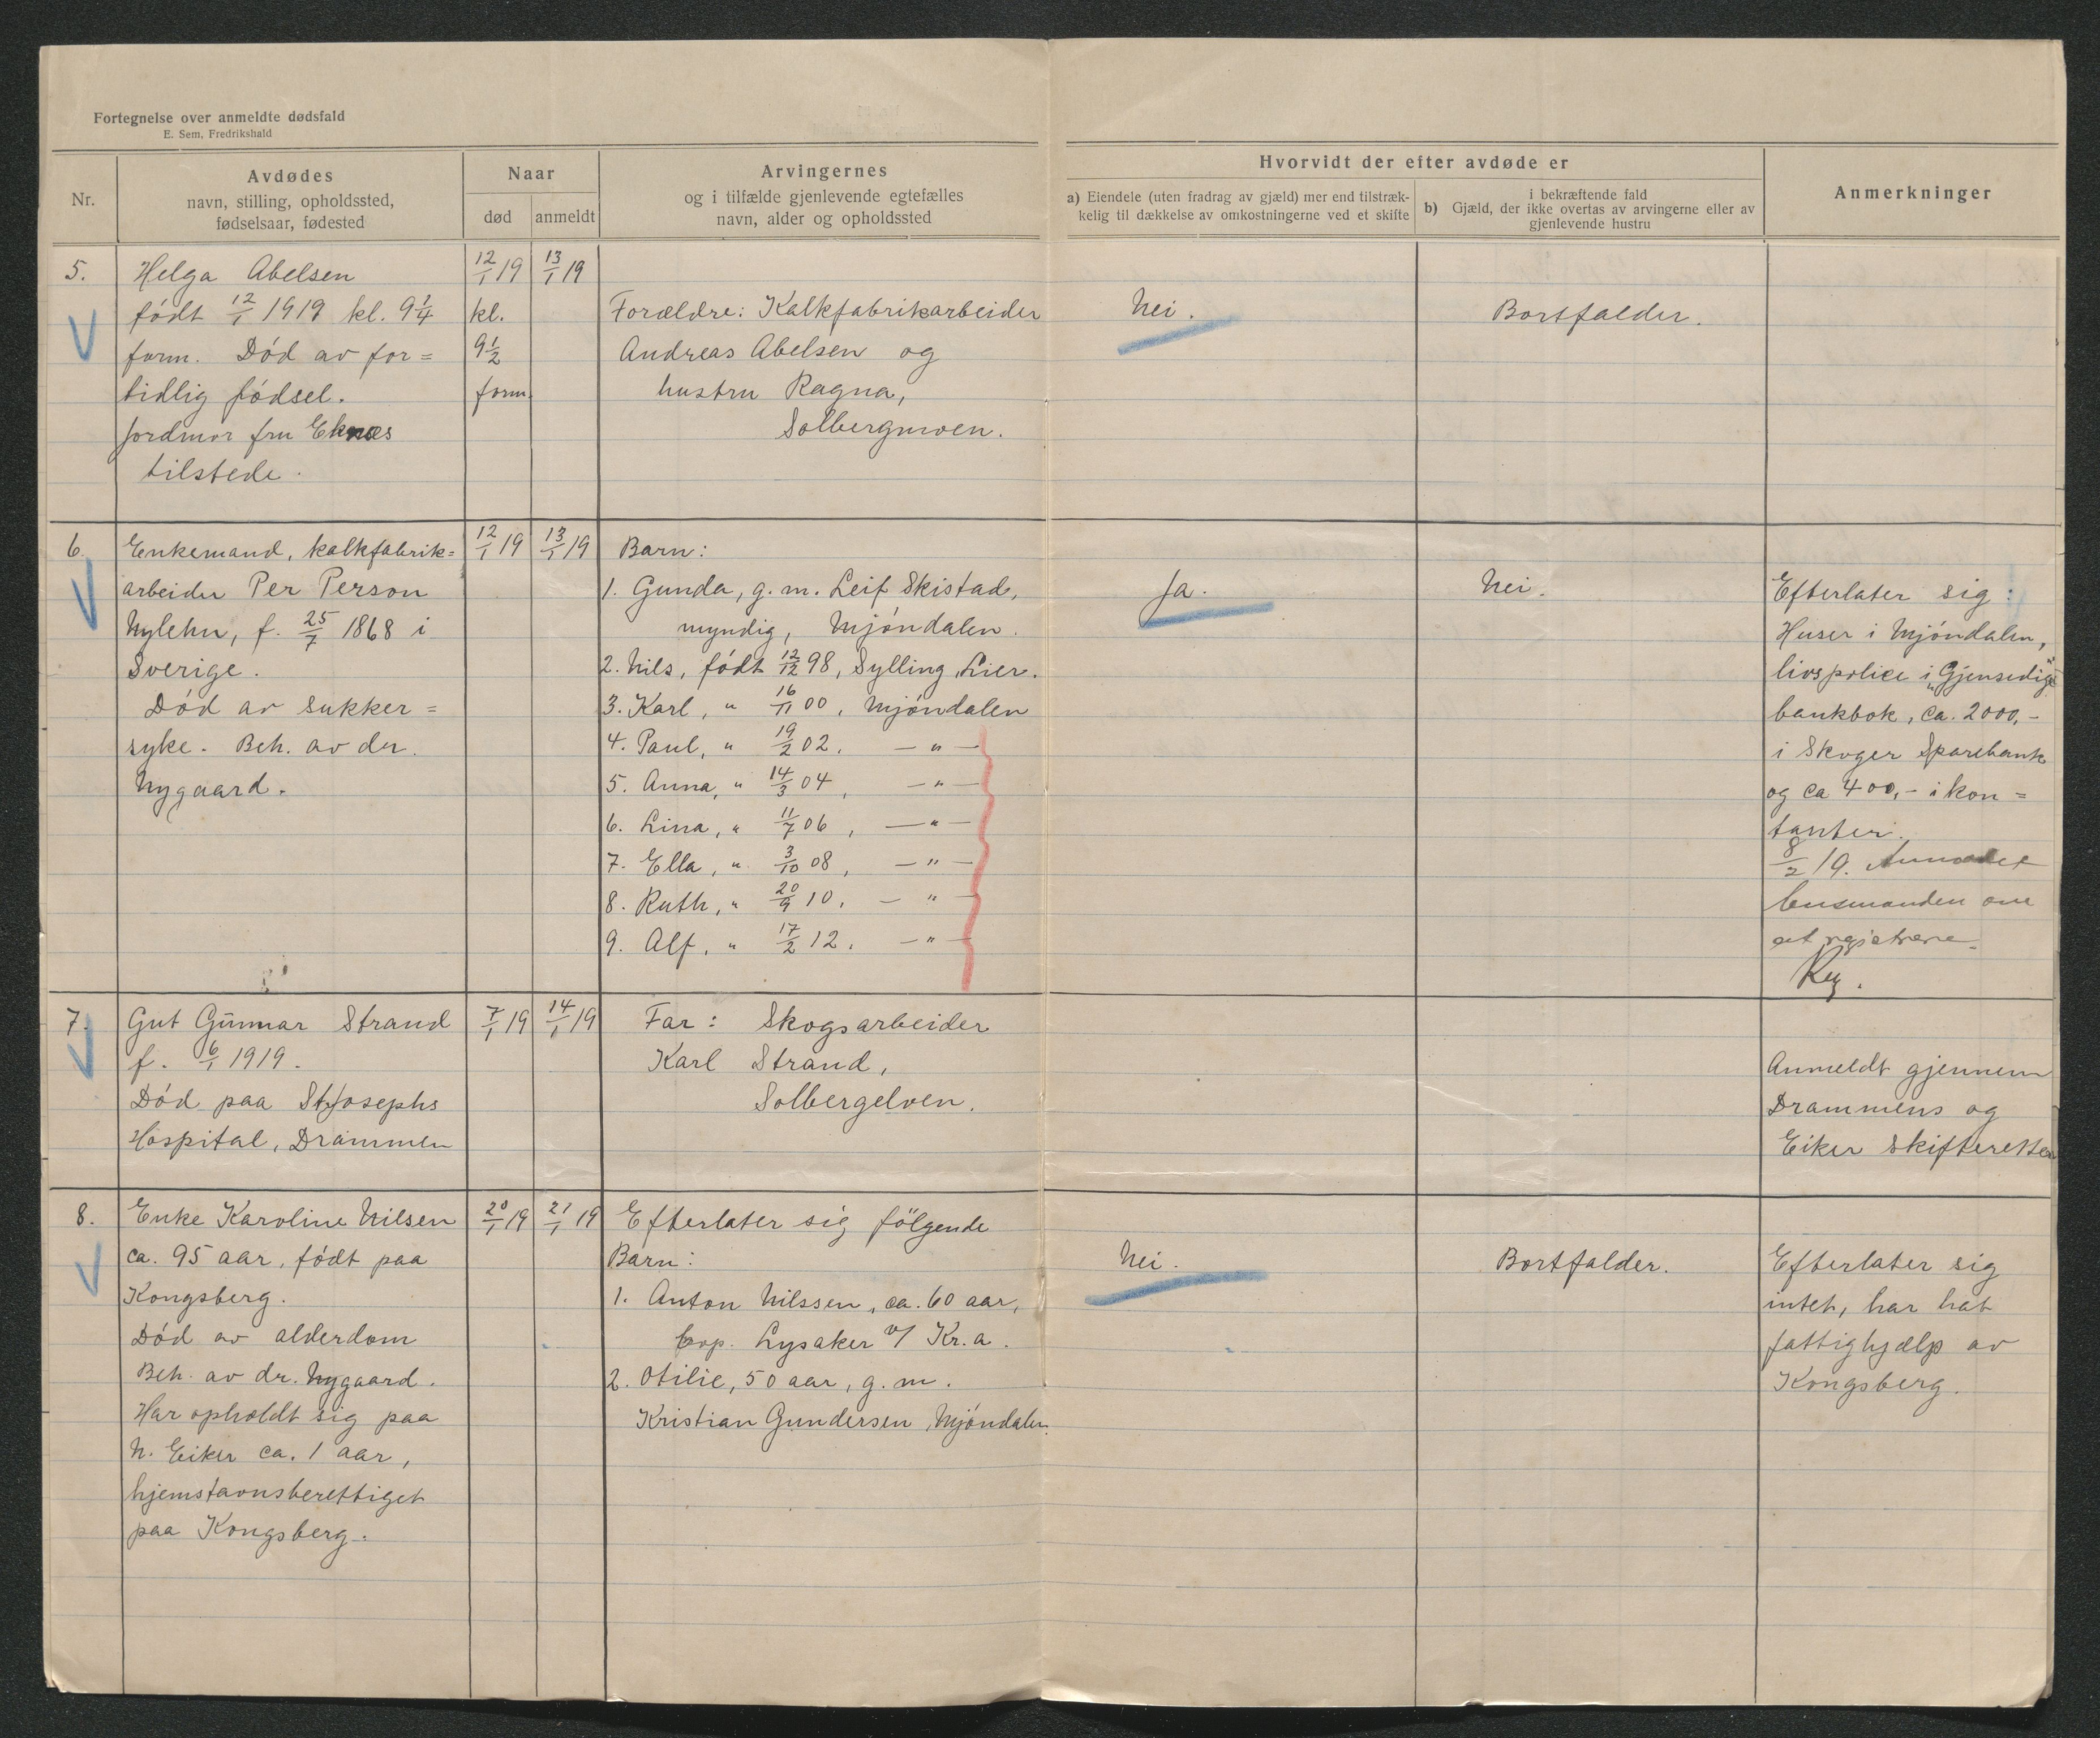 Fortegnelse over anmeldte dødsfald
E. Sem, Fredrikshald
Nr.
Avdødes
navn, stilling, opholdssted,
fødselsaar, fødested
Naar
død
anmeldt
Arvingernes
og i tilfælde gjenlevende egtefælles
navn, alder og opholdssted
Hvorvidt der efter avdøde er
a) Eiendele (uten fradrag av gjæld) mer end tilstræk-
kelig til dækkelse av omkostningerne ved et skifte
i bekræftende fald
b) Gjæld, der ikke overtas av arvingerne eller av
gjenlevende hustru
Anmerkninger
5.
Helga Abelsen
født 12/1 1919 kl. 9 1/4
form. Død av for=
tidlig fødsel.
Jordmor fru Eknes
tilstede.
12/1 19
kl.
9 1/2
form.
13/1 19
Forældre: Kalkfabrikarbeider
Andreas Abelsen og
hustru Ragna,
Solbergmoen.
Nei.
Bortfalder.
6.
Enkemand, kalkfabrik=
arbeider Per Person
Nylehn, f. 25/7 1868 i
Sverige.
Død av sukker=
syke. Beh. av dr.
Nygaard.
12/1 19
13/1 19
Barn:
1. Gunda, g. m. Leif Skistad,
myndig, Mjøndalen.
2. Nils, født 12/12 98, Sylling, Lier.
3. Karl, " 16/11 00, Mjøndalen
4. Paul, " 19/2 02, — " —
5. Anna, " 14/3 04, — " —
6. Lina, " 11/7 06, — " —
7. Ella, " 3/10 08, — " —
8. Ruth, " 20/9 10, — " —
9. Alf, " 17/2 12, — " —
Ja.
Nei.
Efterlater sig:
Huser i Mjøndalen,
livspolice i "Gjensidige"
bankbok, ca. 2000,-
i Skoger Sparebank
og ca 400,- i kon=
tanter.
8/2 19. Anmodet
lensmanden om
at registrere.
Reg.
7.
Gut Gunnar Strand
f. 6/1 1919.
Død paa St. Josephs
Hospital, Drammen
7/1 19
14/1 19
Far: Skogsarbeider
Karl Strand,
Solbergelven.
Anmeldt gjennem
Drammens og
Eiker Skifteretter
8.
Enke Karoline Nilsen
ca. 95 aar, født paa
Kongsberg.
Død av alderdom
Beh. av dr. Nygaard.
Har opholdt sig paa
N. Eiker ca. 1 aar,
hjemstavnsberettiget
paa Kongsberg.
20/1 19
21/1 19
Efterlater sig følgende
Barn:
1. Anton Nilssen, ca. 60 aar,
Lysaker v/ Kr.a.
2. Otilie, 50 aar, g. m.
Kristian Gundersen, Mjøndalen.
Nei.
Bortfalder.
Efterlater sig
intet, har hat
fattighjælp av
Kongsberg.